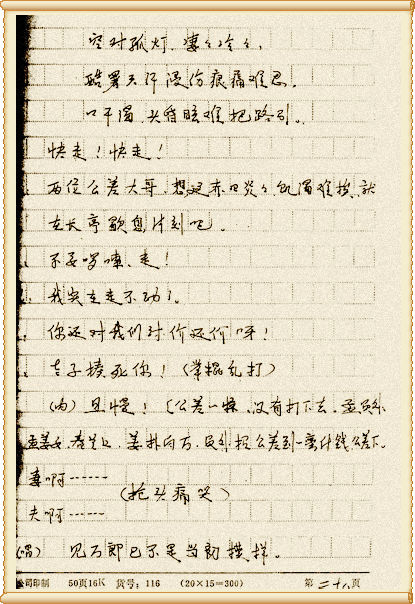 空对孤灯,凄々冷々,
酷暑天汗浸伤痕痛难忍。
口干渴,头昏眩难把路引。
快走!快走!
两位公差大哥,想这赤日炎々,饥渴难挨,就
在长亭歇息片刻吧。
不要啰嗦,走!
我实在走不动了。
你还对我们讨价还价呀!
老子揍死你!(举棍乱打)
(内)且慢!〔公差一怔,没有打下去,孟员外
孟姜女、春兰上,姜扑向万,员外招公差到一旁付钱,公差下。
妻啊……
(抱头痛哭)
夫啊……
(唱) 见万郎已不是当初模样。
公司印制 50页16K 货号:116 (20×15=300) 第二十八页